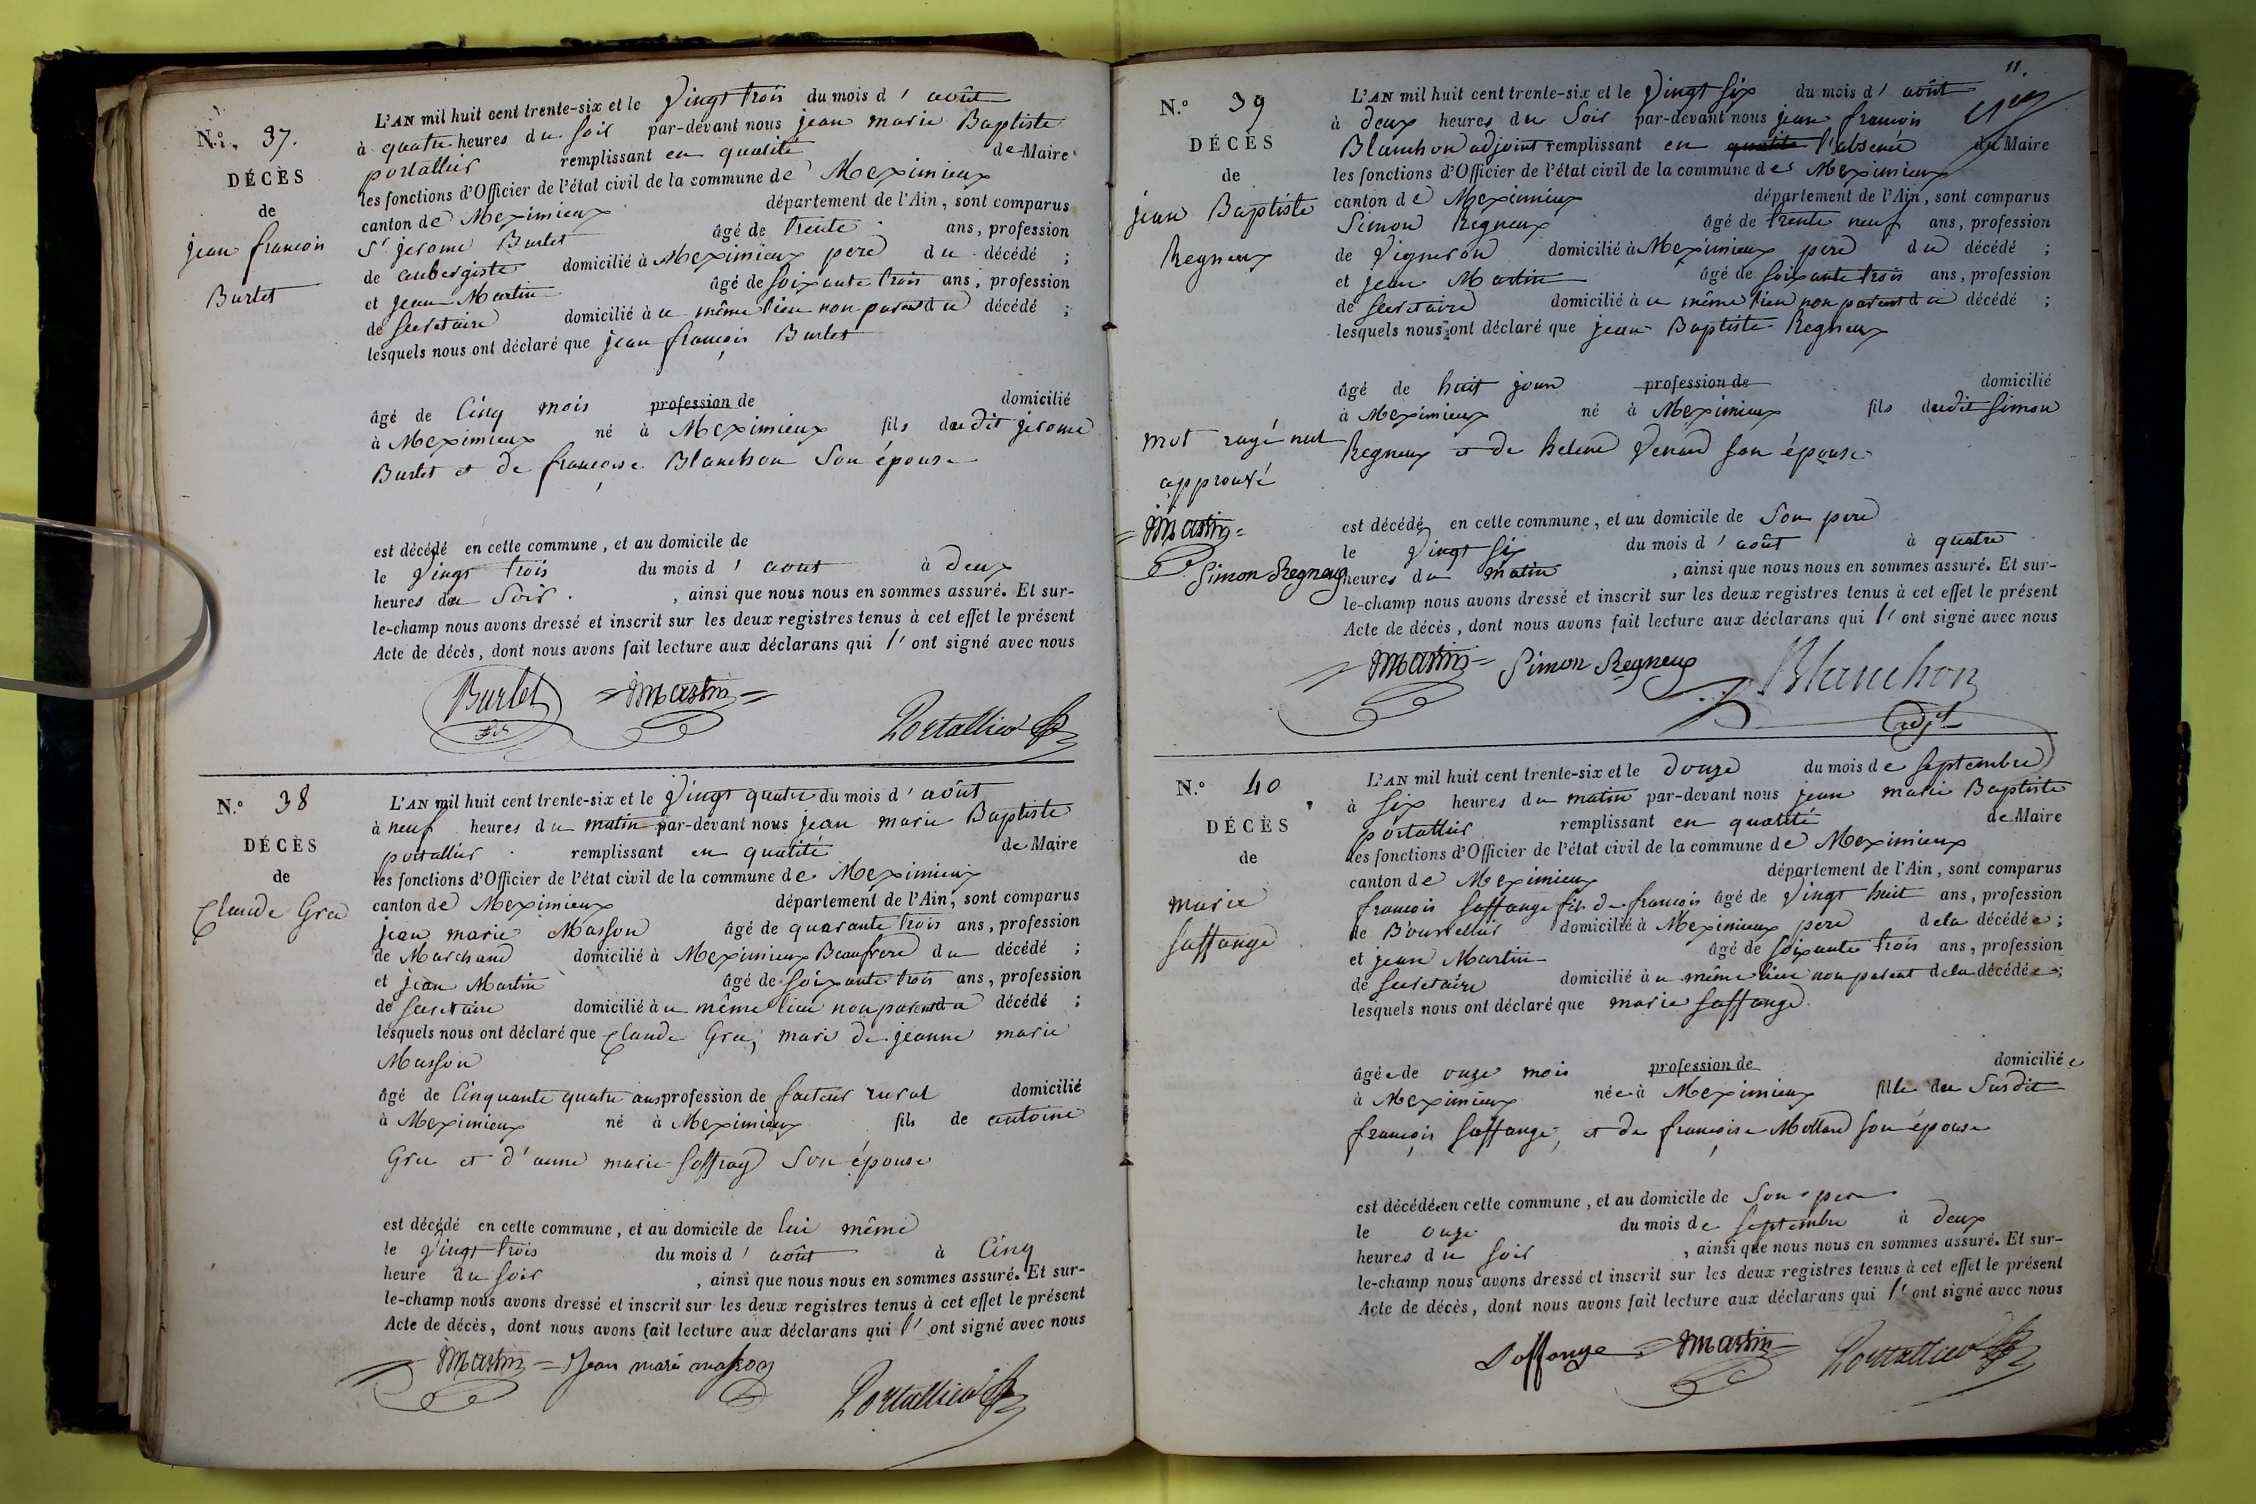 N.º 37.
DÉCÈS
de
jean françois
Burlet
L'AN mil huit cent trente-six et le Vingt trois du mois d' août
à quatre heures du soir par-devant nous jean marie Baptiste
portallier remplissant en qualité de Maire
les fonctions d'Officier de l'état civil de la commune de Meximieux
canton de Meximieux département de l'Ain, sont comparus
St jerome Burlet âgé de trente ans, profession
de aubergiste domicilié à Meximieux pere du décédé ;
et jean Martin âgé de soixante trois ans, profession
de secretaire domicilié à u même lieu non parent du décédé ;
lesquels nous ont déclaré que jean françois Burlet
âgé de Cinq mois profession de domicilié
à Meximieux né à Meximieux fils du dit jerome
Burlet et de françoise Blanchon son épouse
est décédé en cette commune, et au domicile de
le Vingt trois du mois d' aout à deux
heures du soir. , ainsi que nous nous en sommes assuré. Et sur-
le-champ nous avons dressé et inscrit sur les deux registres tenus à cet effet le présent
Acte de décès, dont nous avons fait lecture aux déclarans qui l' ont signé avec nous
Burlet Martin
Portallier
N.º 38
DÉCÈS
de
Claude Gra
L'AN mil huit cent trente-six et le Vingt quatre du mois d' août
à neuf heures du matin par-devant nous jean marie Baptiste
portallier remplissant en qualité de Maire
les fonctions d'Officier de l'état civil de la commune de Meximieux
canton de Meximieux département de l'Ain, sont comparus
jean marie Masson âgé de quarante trois ans, profession
de Marchand domicilié à Meximieux Beaufrere du décédé ;
et jean Martin âgé de soixante trois ans, profession
de secretaire domicilié à u même lieu non parent du décédé ;
lesquels nous ont déclaré que Claude Gra, mari de jeanne marie
Masson
âgé de Cinquante quatre ans profession de facteur rural domicilié
à Meximieux né à Meximieux fils de antoine
Gra et d'anne marie soffray son épouse
est décédé en cette commune, et au domicile de lui même
le Vingt trois du mois d' août à Cinq
heure du soir , ainsi que nous nous en sommes assuré. Et sur-
le-champ nous avons dressé et inscrit sur les deux registres tenus à cet effet le présent
Acte de décès, dont nous avons fait lecture aux déclarans qui l' ont signé avec nous
Martin Jean marie masson
Portallier
11.
N.º 39
DÉCÈS
de
jean Baptiste
Regneux
L'AN mil huit cent trente-six et le Vingt six du mois d' août
à deux heures du soir par-devant nous jean françois
Blanchon adjoint remplissant en qualité l'absence du Maire
les fonctions d'Officier de l'état civil de la commune de Meximieux
canton de Meximieux département de l'Ain, sont comparus
Simon Regneux âgé de trente neuf ans, profession
de Vigneron domicilié à Meximieux pere du décédé ;
et jean Martin âgé de soixante trois ans, profession
de secretaire domicilié à u même lieu non parent du décédé ;
lesquels nous ont déclaré que jean Baptiste Regneux
âgé de huit jours profession de domicilié
à Meximieux né à Meximieux fils du dit simon
Regneux et de helene Venard son épouse
mot rayé nul
approuvé
Martin
Simon Regneux
est décédé en cette commune, et au domicile de son pere
le Vingt six du mois d' août à quatre
heures du matin , ainsi que nous nous en sommes assuré. Et sur-
le-champ nous avons dressé et inscrit sur les deux registres tenus à cet effet le présent
Acte de décès, dont nous avons fait lecture aux déclarans qui l' ont signé avec nous
Martin Simon Regneux Blanchon
adjt
N.º 40
DÉCÈS
de
marie
saffange
L'AN mil huit cent trente-six et le douze du mois de septembre
à six heures du matin par-devant nous jean marie Baptiste
portallier remplissant en qualité de Maire
les fonctions d'Officier de l'état civil de la commune de Meximieux
canton de Meximieux département de l'Ain, sont comparus
françois saffange fils de françois âgé de Vingt huit ans, profession
de Bourrellier domicilié à Meximieux pere dela décédée ;
et jean Martin âgé de soixante trois ans, profession
de secretaire domicilié à u même lieu non parent dela décédée ;
lesquels nous ont déclaré que marie saffange
âgée de onze mois profession de domiciliée
à Meximieux née à Meximieux fille du susdit
françois saffange, et de françoise Mottard son épouse
est décédée en cette commune, et au domicile de son pere
le onze du mois de septembre à deux
heures du soir , ainsi que nous nous en sommes assuré. Et sur-
le-champ nous avons dressé et inscrit sur les deux registres tenus à cet effet le présent
Acte de décès, dont nous avons fait lecture aux déclarans qui l' ont signé avec nous
Saffange Martin Portallier